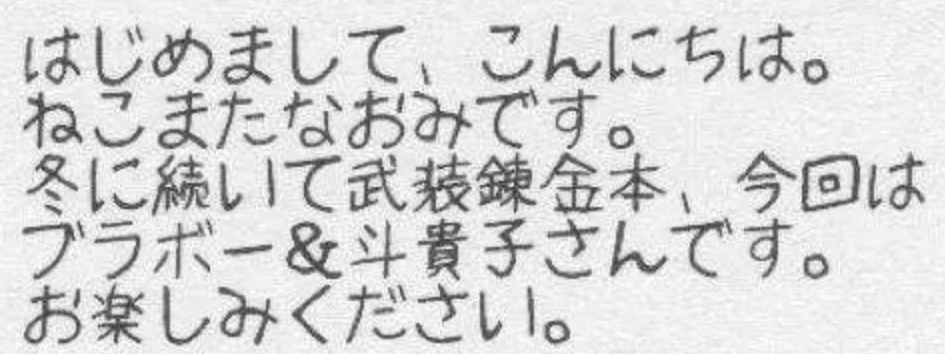 はじめまして、こんにちは。
ねこまたなおみです。
冬に続いて武装錬金本、今回は
ブラボー&斗貴子さんです。
お楽しみください。